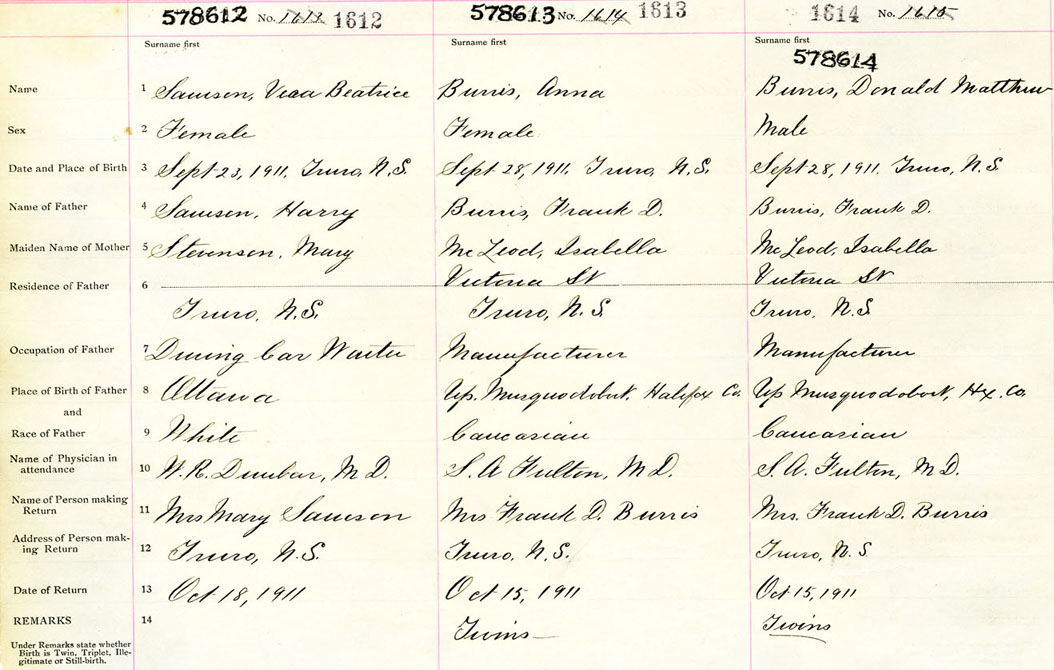 578612 No. 1613 1612
578613 No. 1614 1613
1614 No. 1615
Surname first Surname first Surname first
578614
Name 1 Samson, Vera Beatrice Burris, Anna Burris, Donald Matthew
Sex 2 Female Female Male
Date and Place of Birth 3 Sept 23, 1911. Truro, N.S. Sept 28, 1911. Truro, N.S. Sept 28, 1911. Truro, N.S.
Name of Father 4 Samson, Harry Burris, Frank D. Burris, Frank D.
Maiden Name of Mother 5 Stevenson, Mary McLeod, Isabella McLeod, Isabella
Residence of Father 6 Victoria St Victoria St
Truro, N.S. Truro, N.S Truro, N.S
Occupation of Father 7 Dining Car Waiter Manufacturer Manufacturer
Place of Birth of Father 8 Ottawa Up. Musquodobot, Halifax Co. Up Musquodoboit, Hx. Co.
and
Race of Father 9 White Caucasian Caucasian
Name of Physician in
attendance 10 W. R. Dunbar, M D. S. A Fulton, M D. S. A. Fulton, M D.
Name of Person making
Return 11 Mrs Mary Samson Mrs Frank D. Burris Mrs. Frank D. Burris
Address of Person mak-
ing Return 12 Truro, N.S. Truro, N.S. Truro, N.S
Date of Return 13 Oct 18, 1911 Oct 15, 1911 Oct 15, 1911
REMARKS 14 Twins Twins
Under Remarks state whether
Birth is Twin, Triplet, Ille-
gitimate or Still-birth.